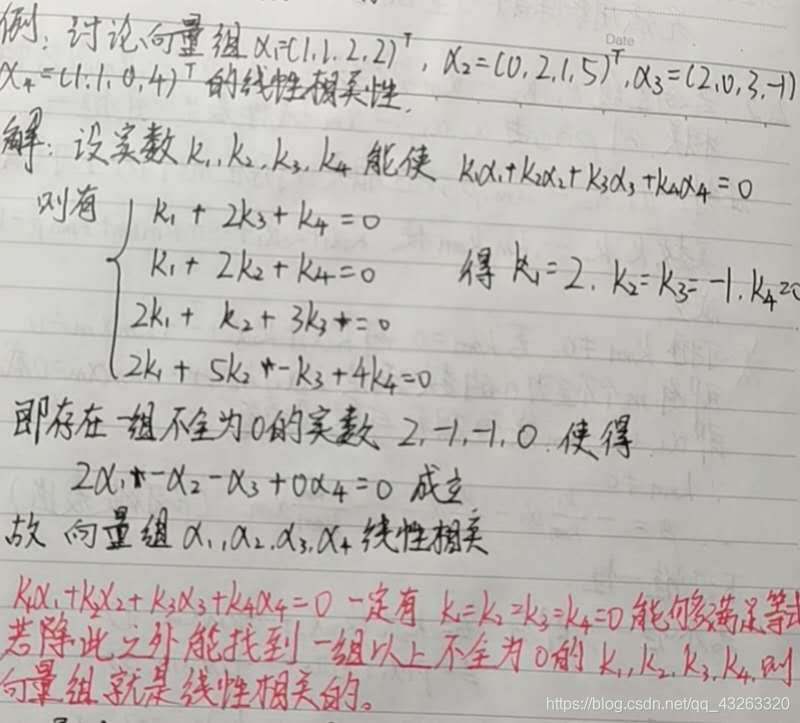 例: 讨论向量组 α₁=(1,1,2,2)ᵀ, α₂=(0,2,1,5)ᵀ, α₃=(2,0,3,-1)
Date
α₄=(1,1,0,4)ᵀ 的线性相关性.
解: 设实数 k₁,k₂,k₃,k₄ 能使 k₁α₁+k₂α₂+k₃α₃+k₄α₄=0
则有 k₁+2k₃+k₄=0
k₁+2k₂+k₄=0 得 k₁=2, k₂=k₃=-1, k₄=0
2k₁+k₂+3k₃=0
2k₁+5k₂-k₃+4k₄=0
即存在一组不全为0的实数 2,-1,-1,0. 使得
2α₁-α₂-α₃+0α₄=0 成立
故 向量组 α₁,α₂,α₃,α₄ 线性相关
k₁α₁+k₂α₂+k₃α₃+k₄α₄=0 一定有 k₁=k₂=k₃=k₄=0 能够满足等式
若除此之外能找到一组以上不全为0的 k₁,k₂,k₃,k₄, 则
向量组就是线性相关的。
https://blog.csdn.net/qq_43263320